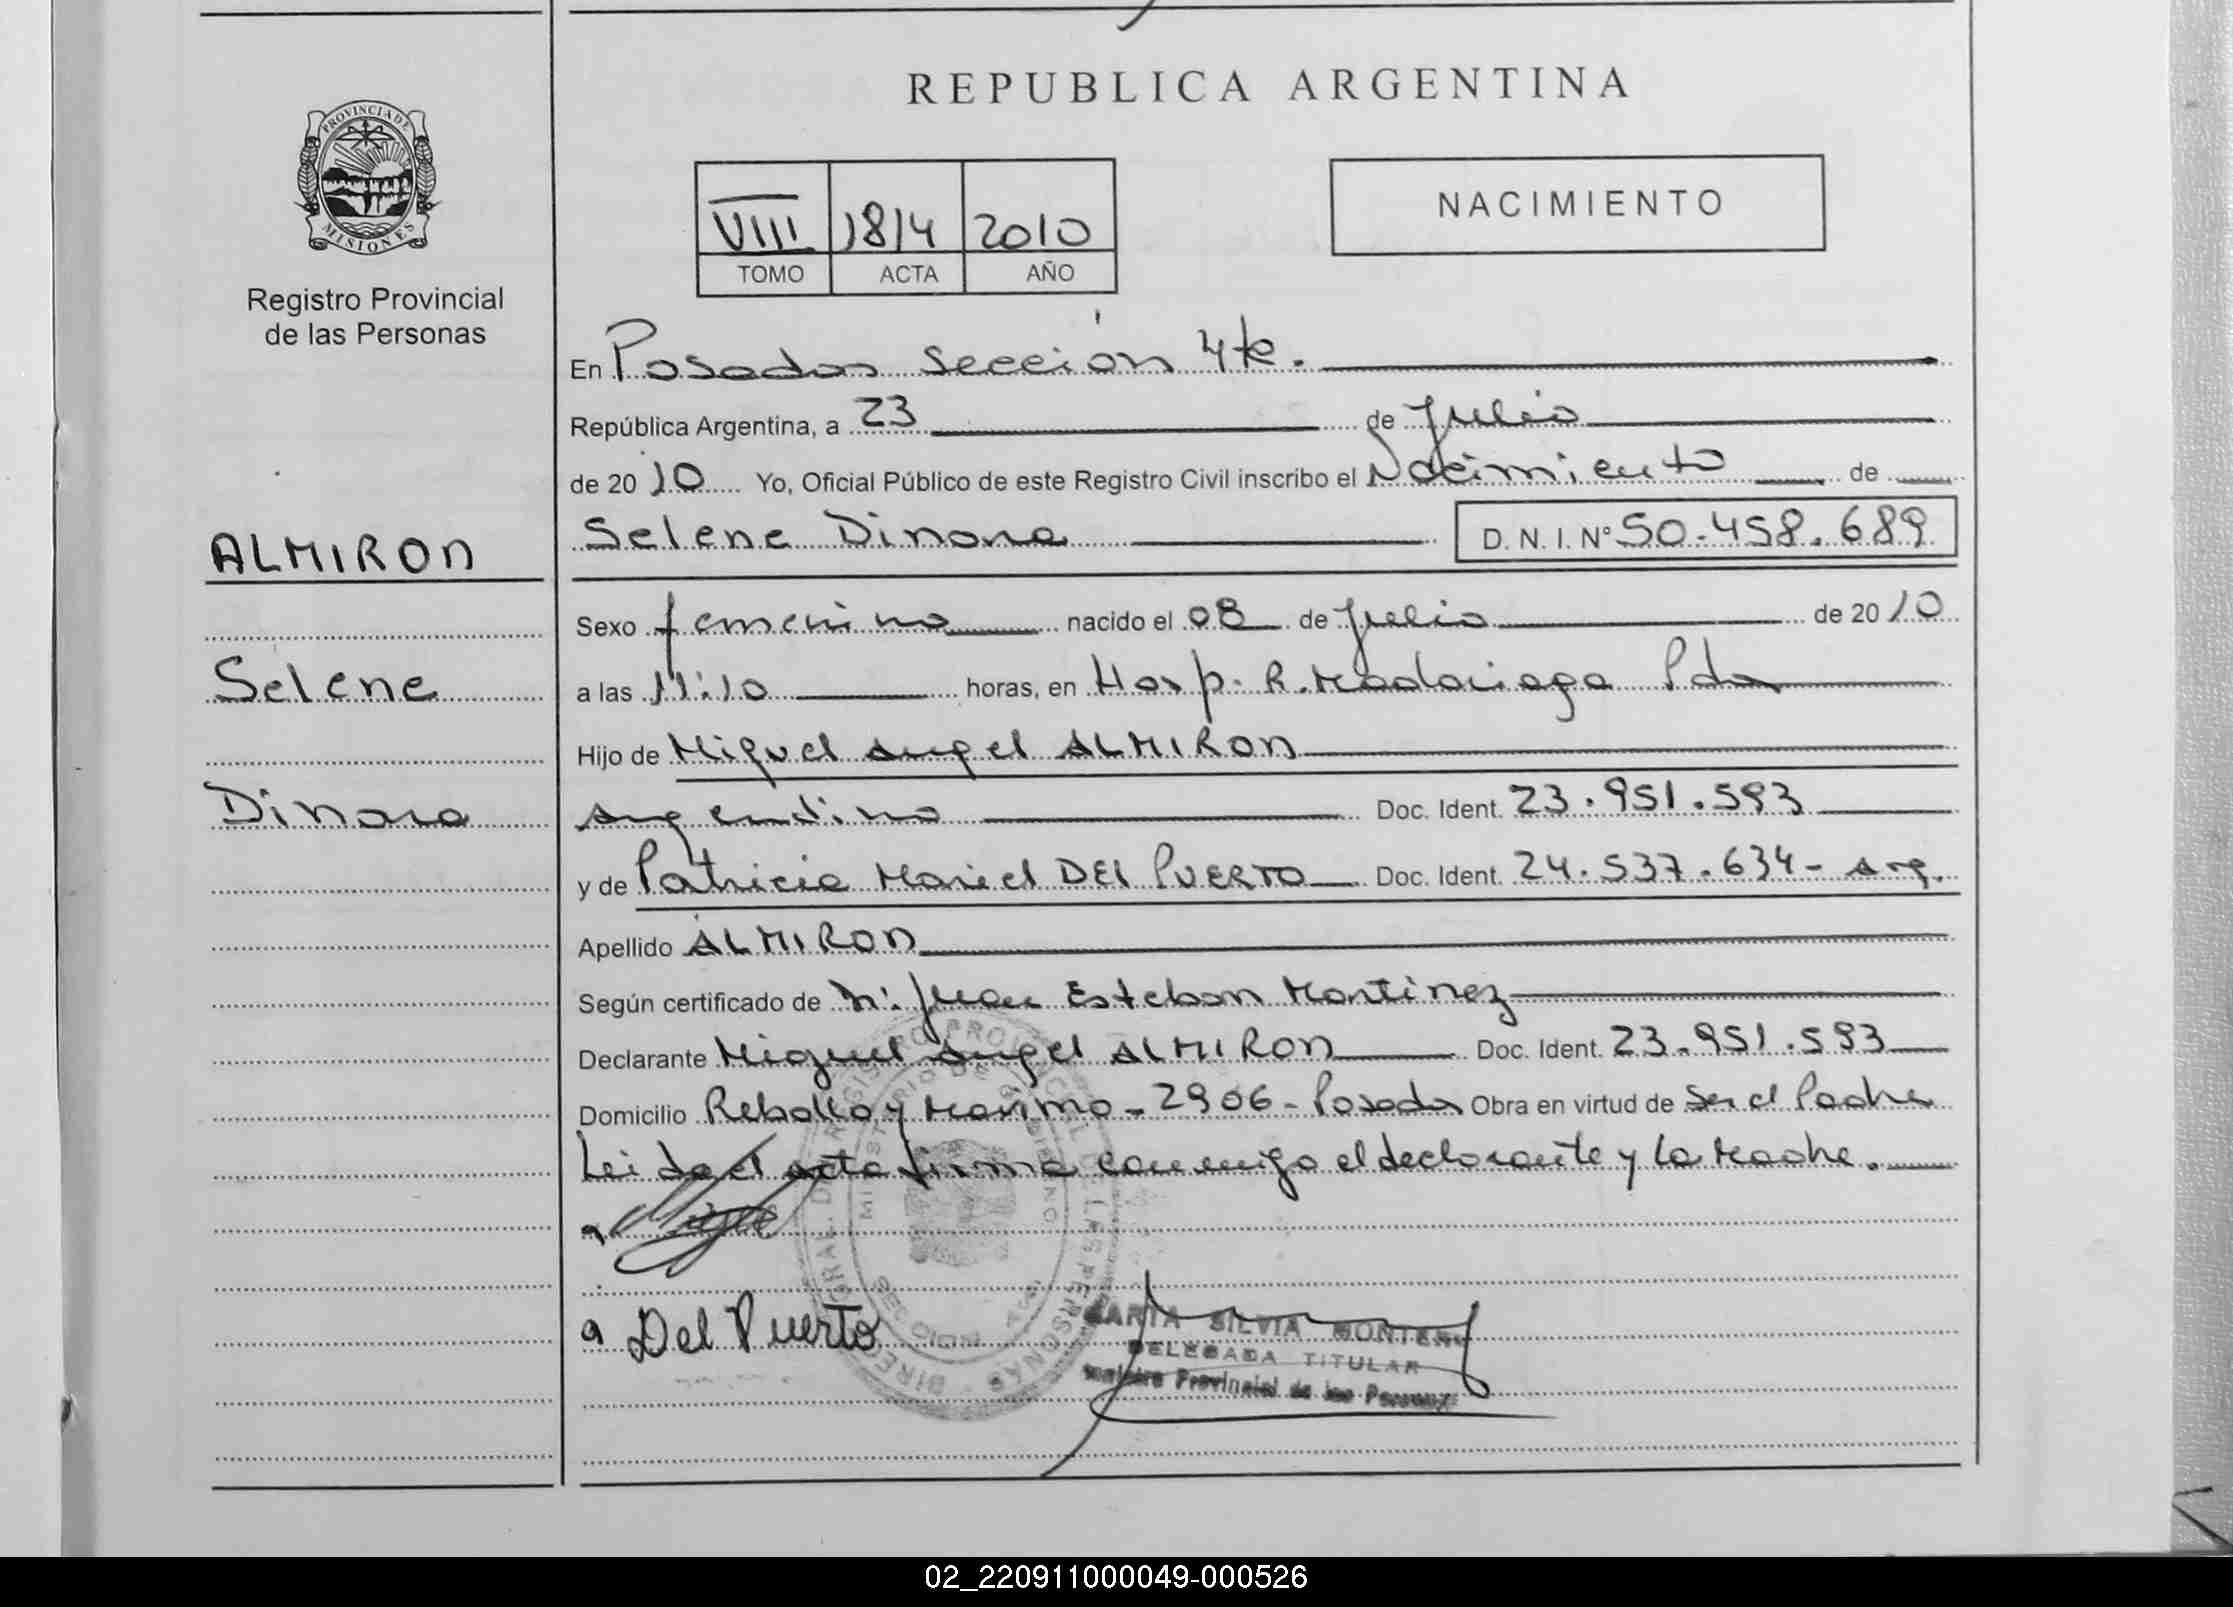 REPUBLICA ARGENTINA
PROVINCIA DE MISIONES
Registro Provincial
de las Personas
VIII 1814 2010
TOMO ACTA AÑO
NACIMIENTO
En Posadas Sección 4ta.
República Argentina, a 23 de Julio
de 2010 Yo, Oficial Público de este Registro Civil inscribo el Nacimiento de
Selene Dinora D. N. I. Nº 50.458.689
ALMIRON
Selene
Dinora
Sexo femenino nacido el 08 de Julio de 2010
a las 11:10 horas, en Hosp. R. Madariaga Pdas
Hijo de Miguel Angel ALMIRON
argentino Doc. Ident. 23.951.593
y de Patricia Mariel DEL PUERTO Doc. Ident. 24.537.634- arg.
Apellido ALMIRON
Según certificado de Juan Esteban Martinez
Declarante Miguel Angel ALMIRON Doc. Ident. 23.951.593
Domicilio y Maximo - 2906 - Posadas Obra en virtud de Ser el Padre
Leida el acta firma conmigo el declarante y la Madre.
a Del Puerto
MARTA SILVIA MONTERO
DELEGADA TITULAR
Registro Provincial de las Personas
02_220911000049-000526